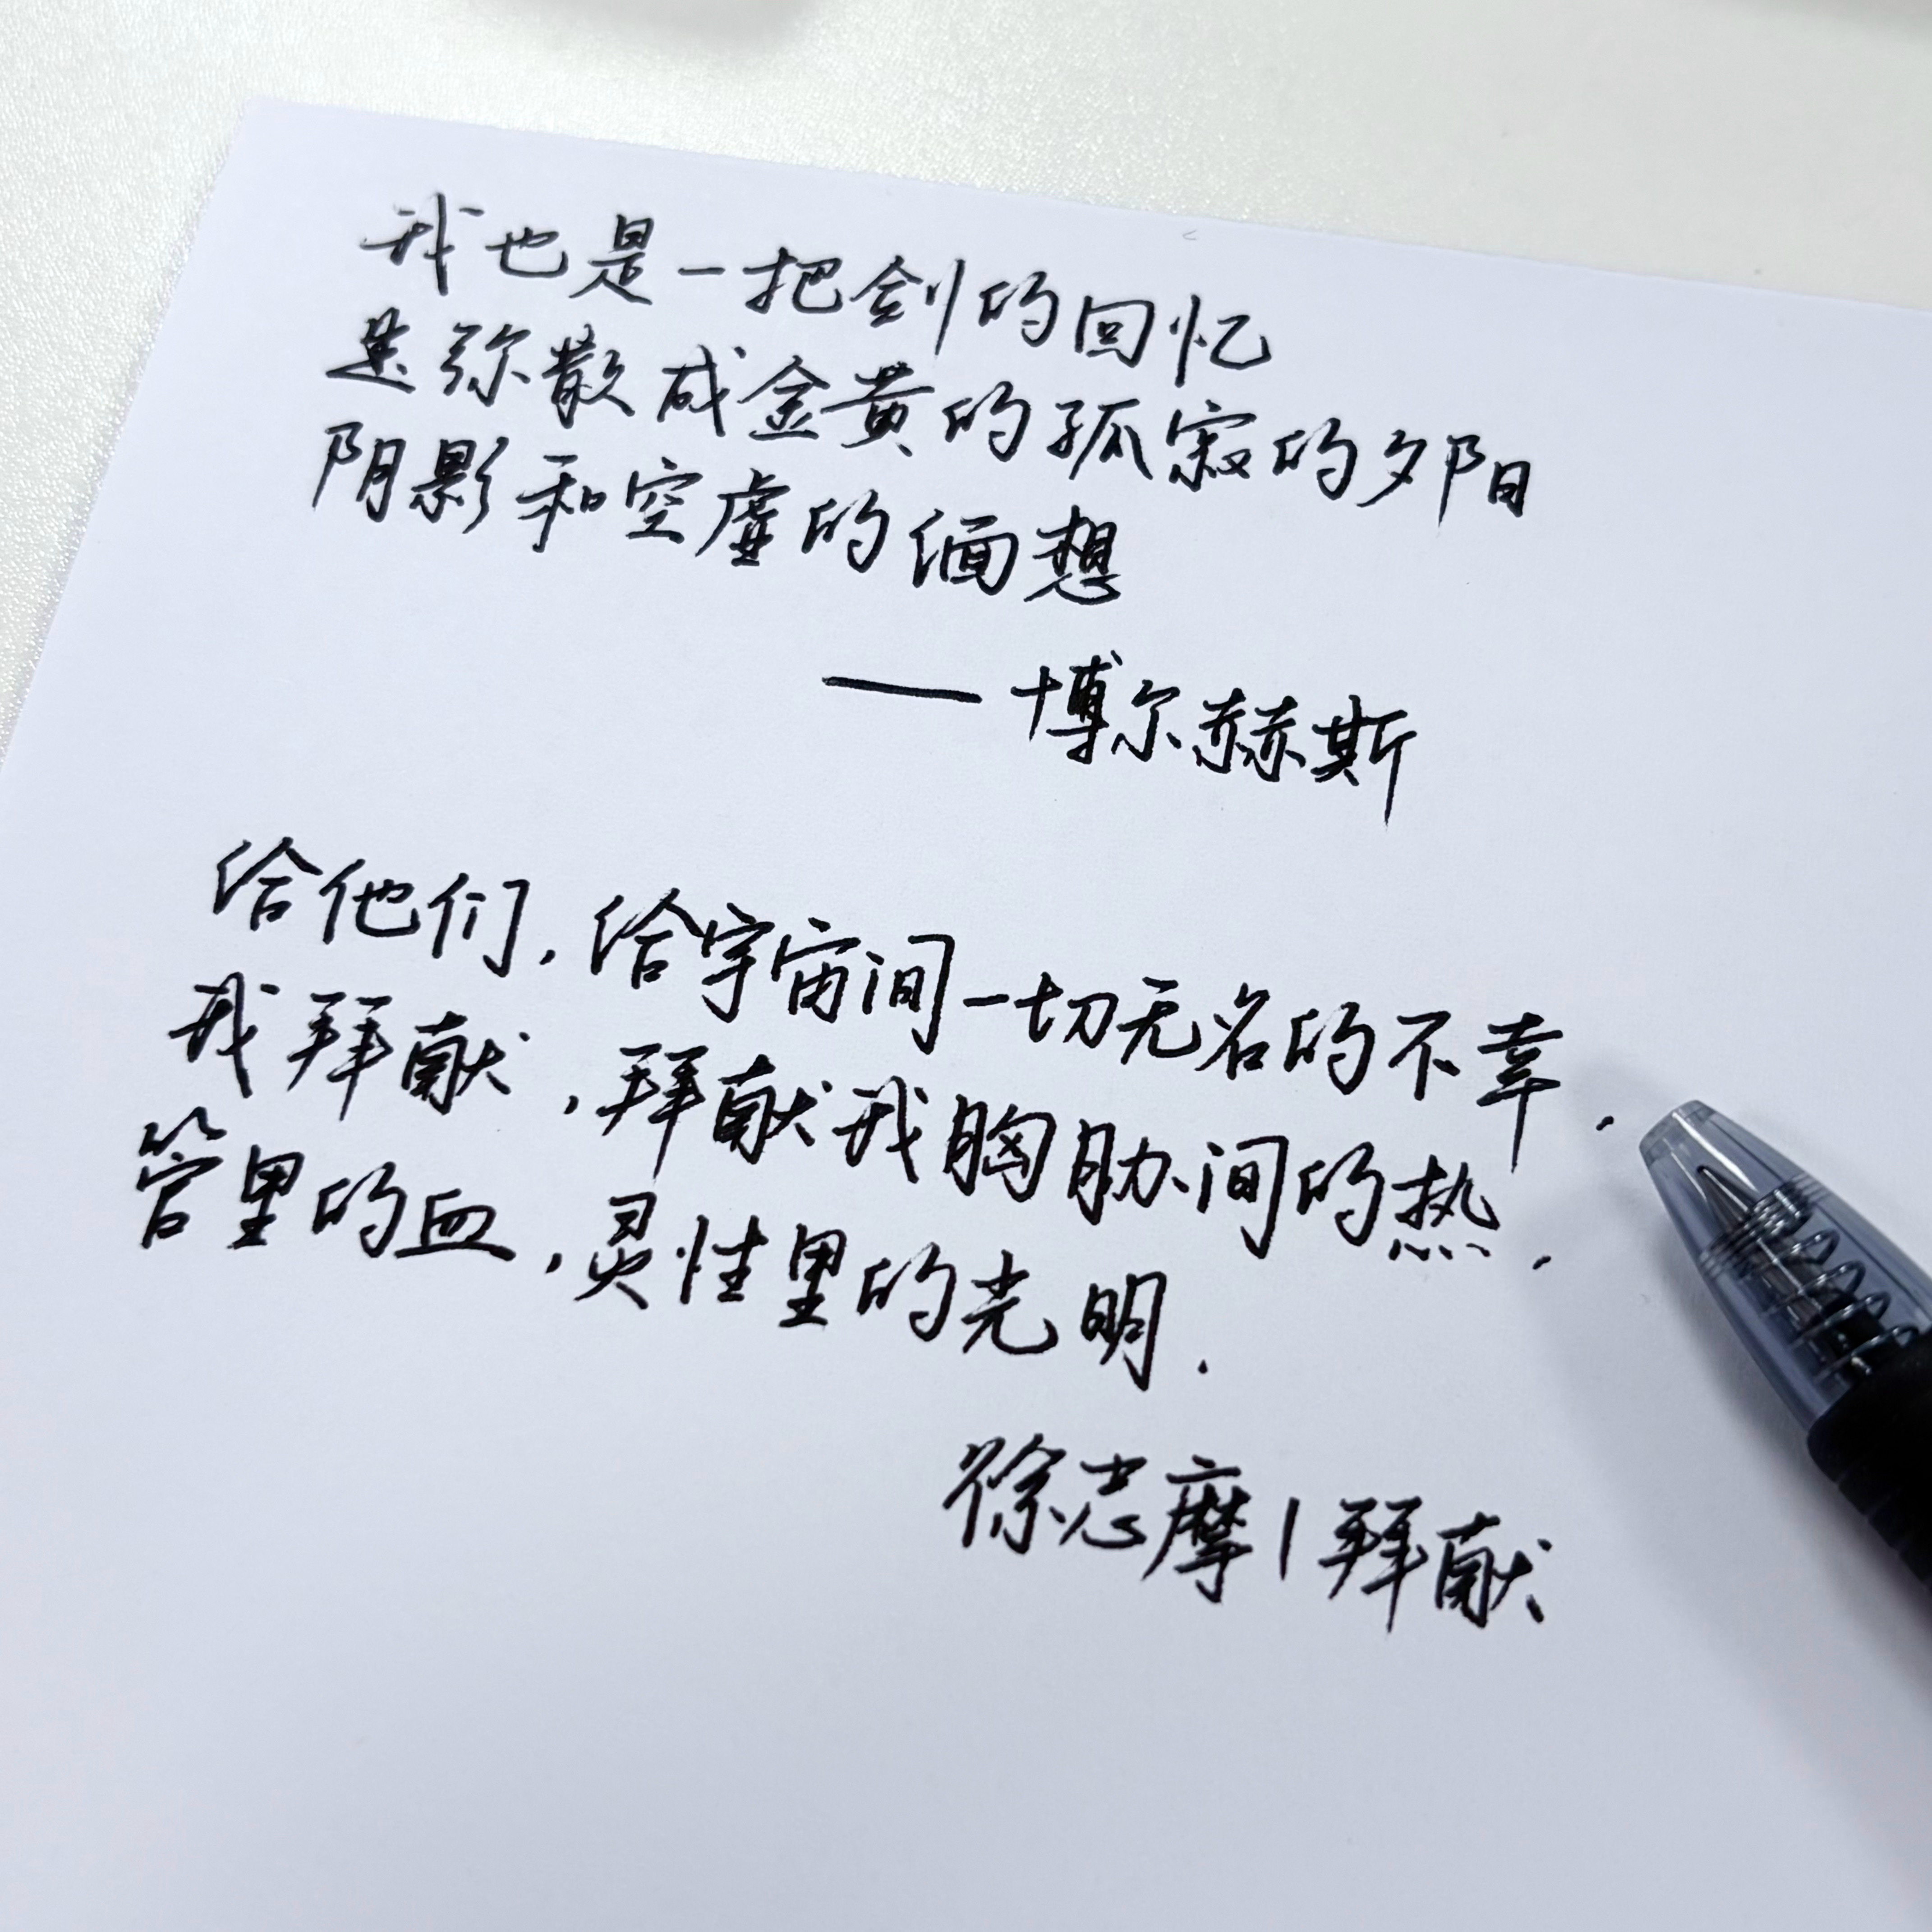 我也是一把剑的回忆
是弥散成金黄的孤寂的夕阳
阴影和空虚的缅想
——博尔赫斯
给他们,给宇宙间一切无名的不幸,
我拜献,拜献我胸胁间的热,
管里的血,灵性里的光明.
徐志摩|拜献